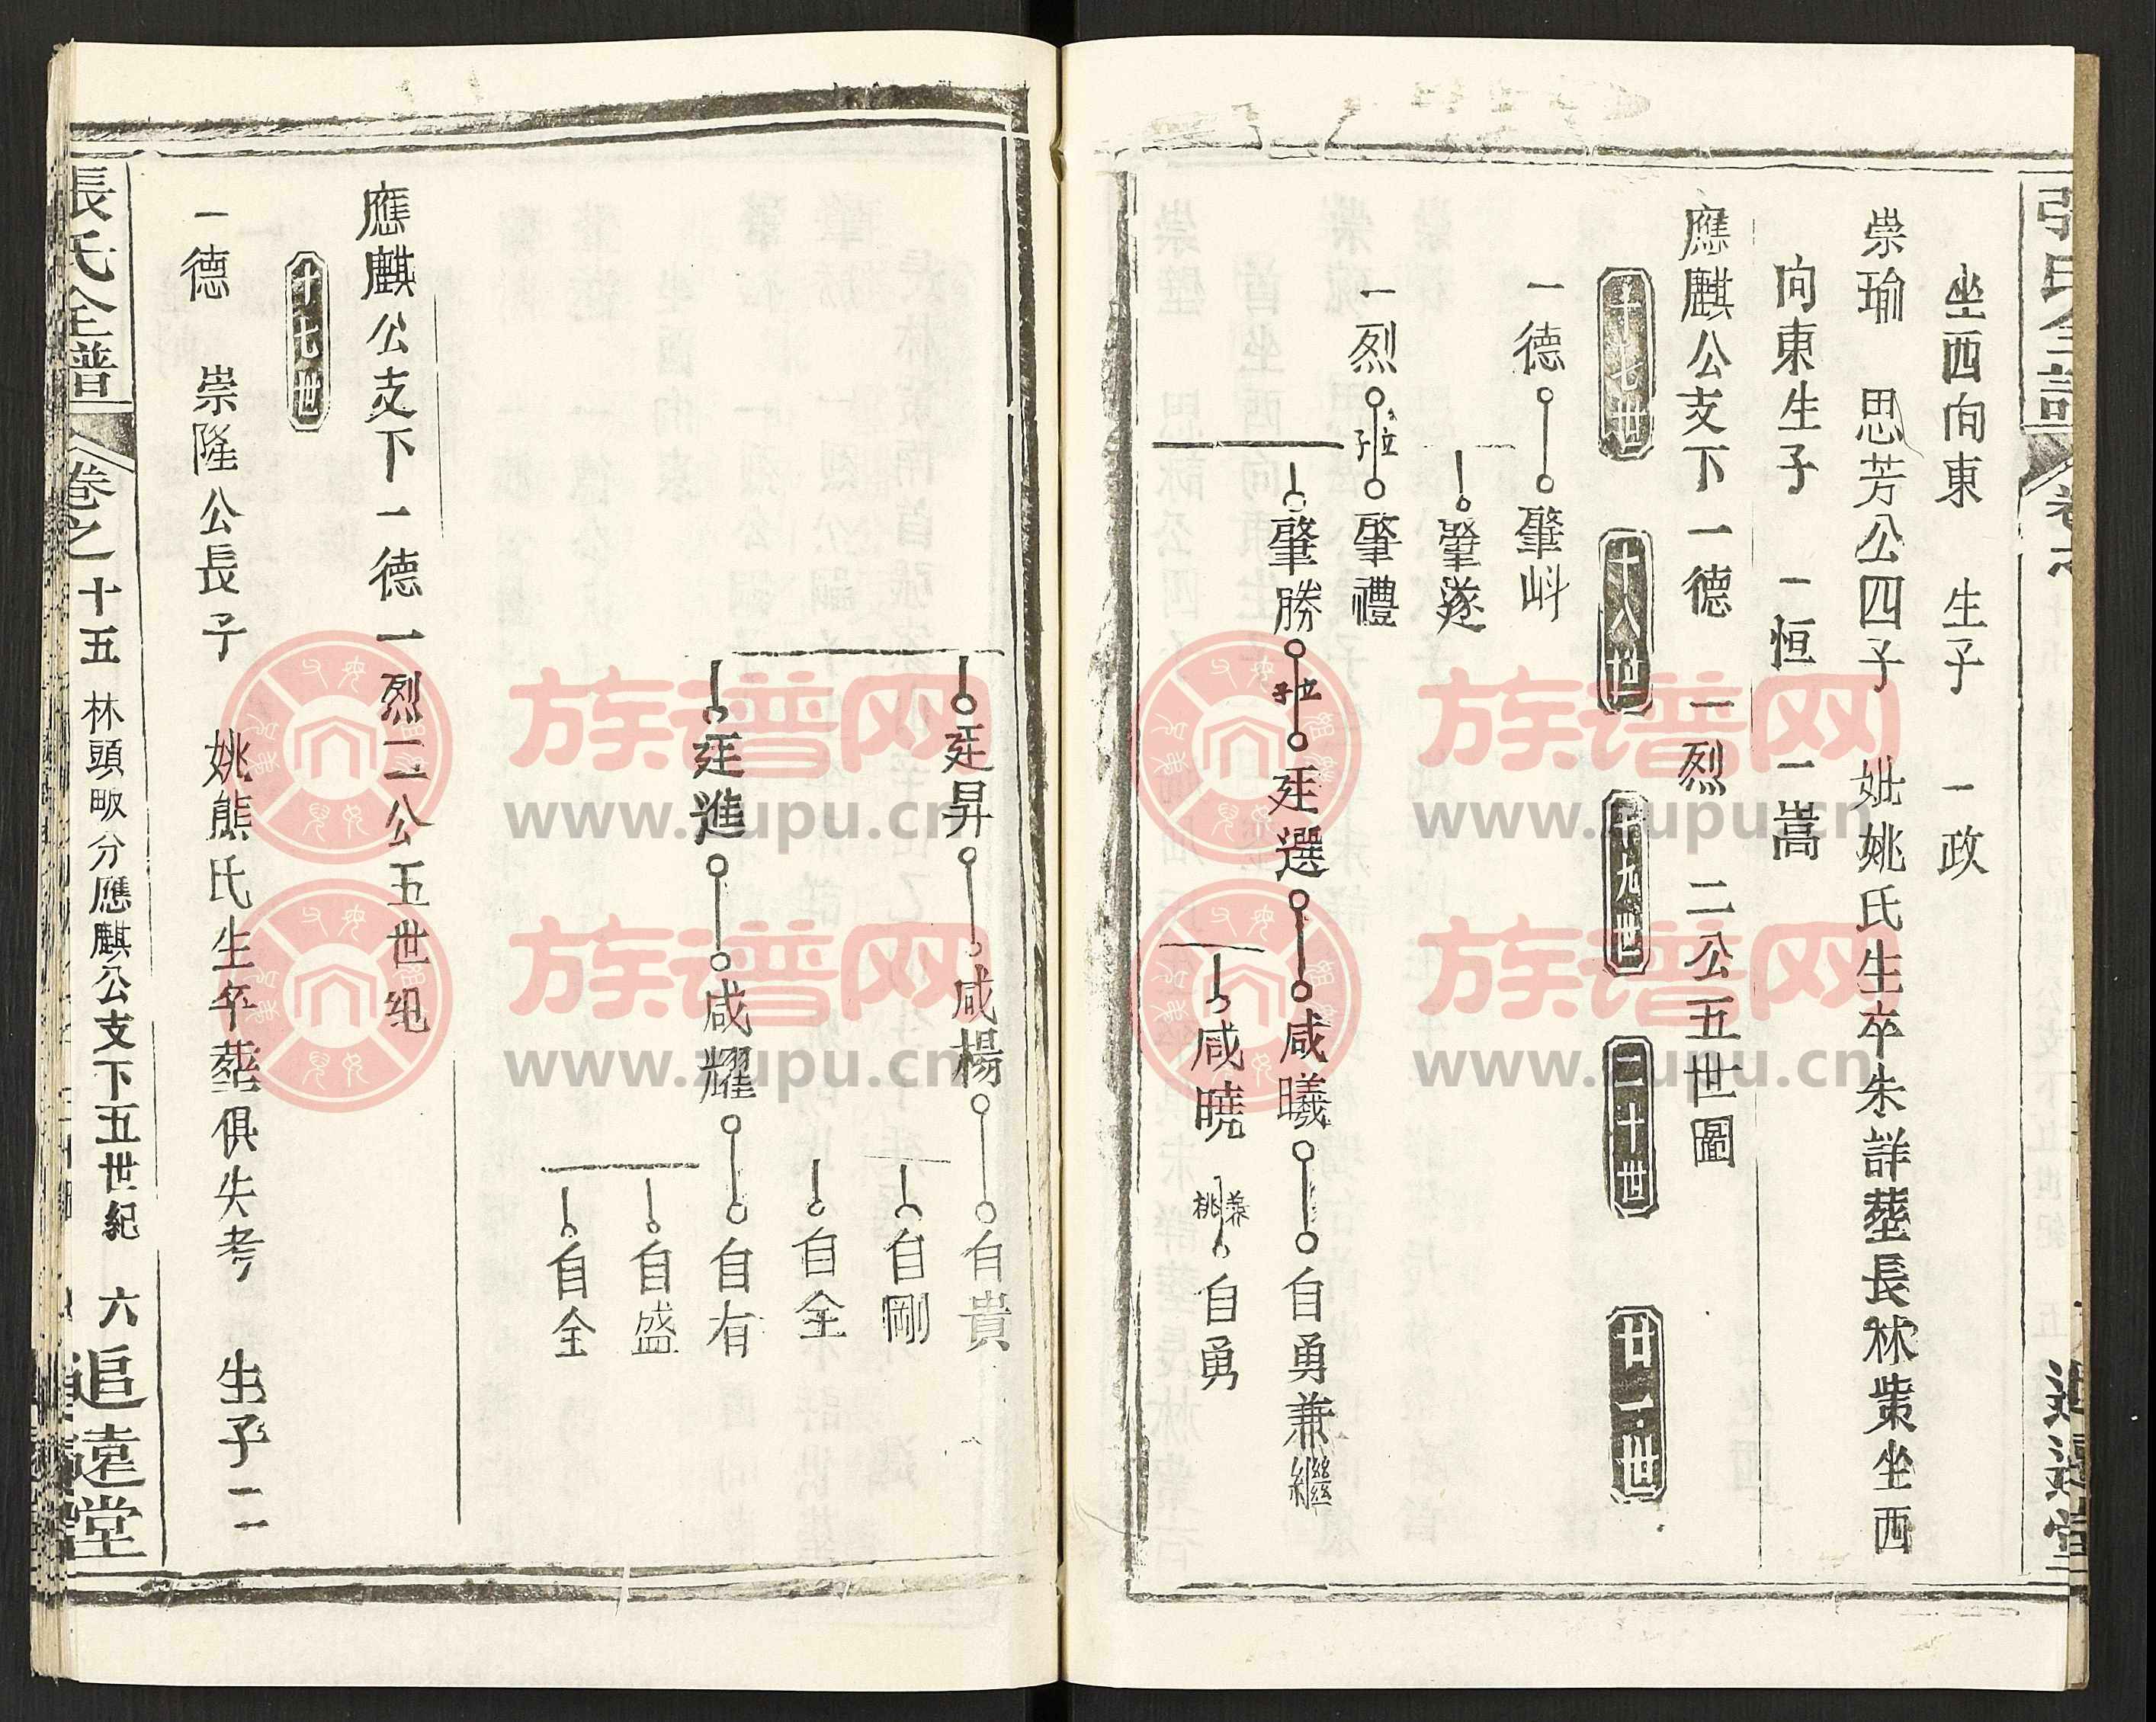 坐西向東　生子　一政
崇瑜　思芳公四子　妣姚氏生卒未詳塟長林柴坐西
向東生子　一恒　一嵩
應麒公支下一德　一烈　二公五世圖
十七世　十八世　十九世　二十世　廿一世
一德　肇㟁
肇遂
一烈　立子　肇禮
肇勝　立子　廷選　咸曦　自勇兼繼
咸曉　兼祧　自勇
追遠堂
廷昇　咸楊　自貴
自剛
自全
廷進　咸耀　自有
自盛
自全
應麒公支下一德一烈二公五世紀
十七世
一德　崇隆公長子　姚熊氏生卒塟俱失考　生子二
張氏全譜　卷之十五　林頭畈分應麒公支下五世紀　六　追遠堂
族谱网
www.zupu.cn
族谱网
www.zupu.cn
族谱网
www.zupu.cn
族谱网
www.zupu.cn